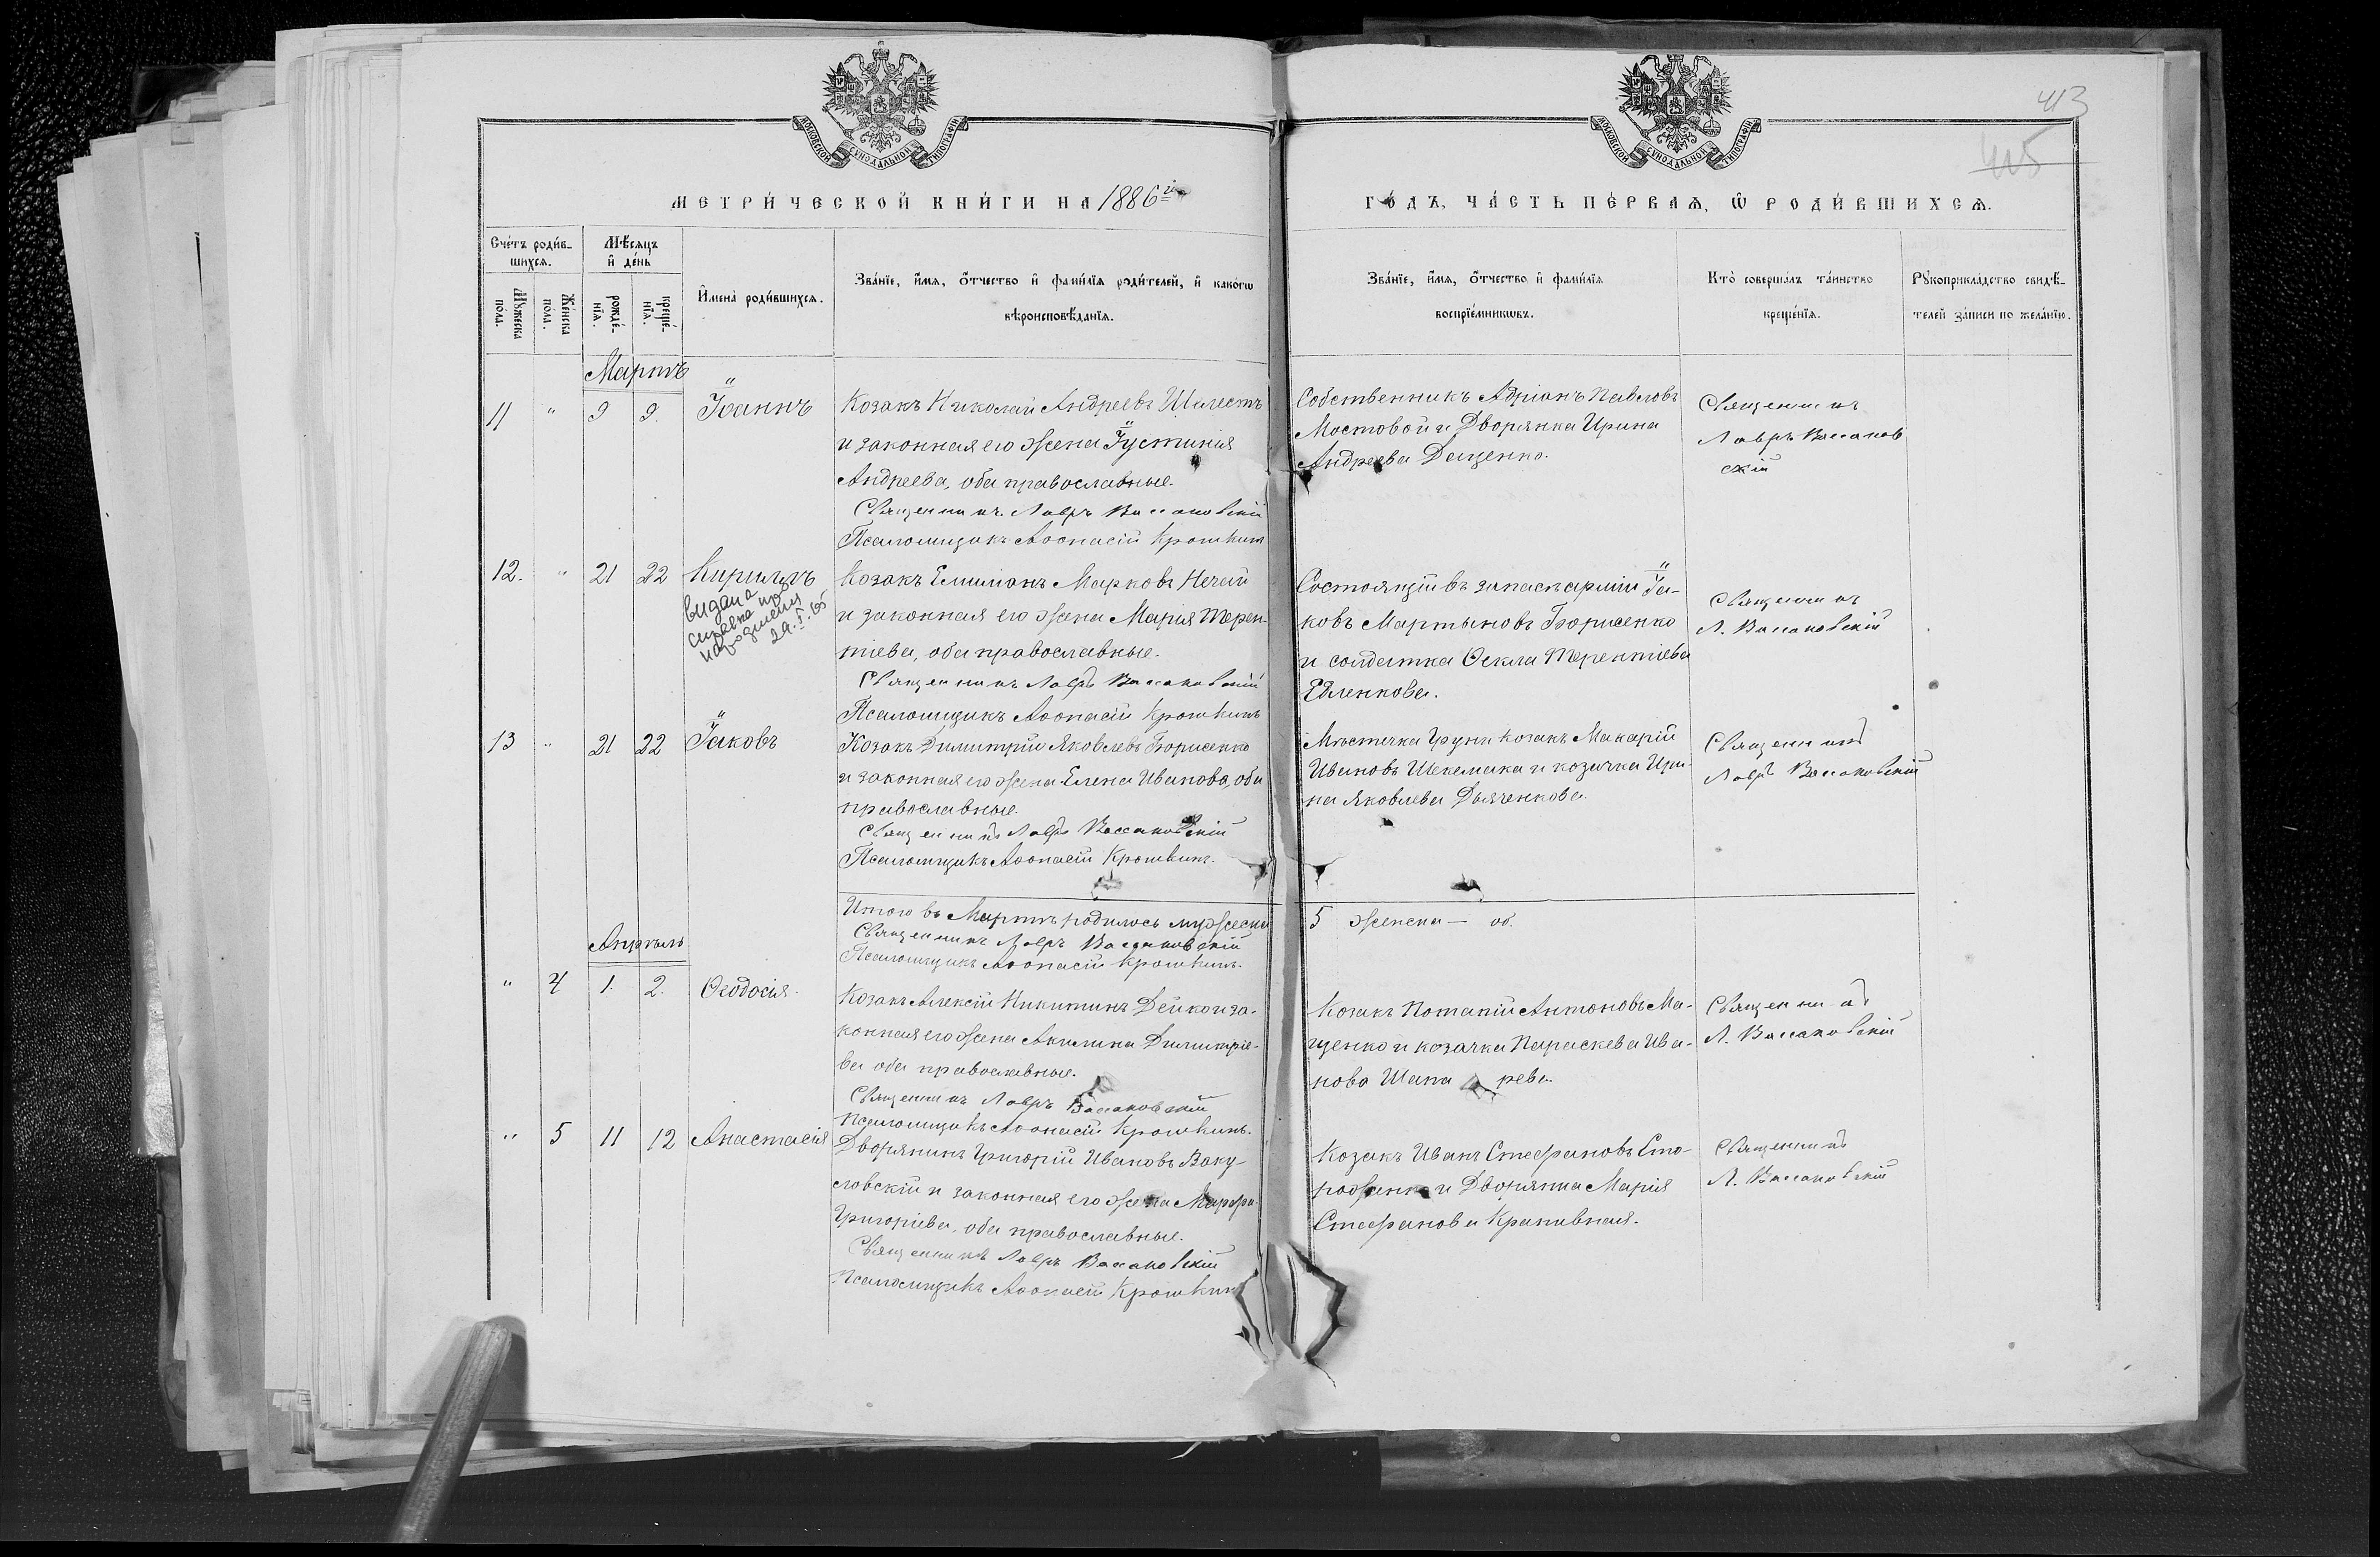 413
415
МОСКОВСКОЙ СѴНОДАЛЬНОЙ ТИПОГРАФІИ
МОСКОВСКОЙ СѴНОДАЛЬНОЙ ТИПОГРАФІИ
МЕТРИ́ЧЕСКОЙ КНИ́ГИ НА 1886й
ГО́ДЪ, ЧА́СТЬ ПЕ́РВАѦ, Ѡ РОДИ́ВШИХСѦ.
Сче́тъ роди́в-
шихсѧ.
Мѣ́сяцъ
и де́нь
Мꙋжеска по́ла.
Же́нска по́ла.
рожде́-
нїѧ.
креще́-
нїѧ.
Имена̀ роди́вшихсѧ.
Зва́нїе, и́мѧ, о́тчество и фами́лїѧ роди́телей, и како́гѡ
вѣроисповѣ́данїѧ.
Зва́нїе, и́мѧ, о́тчество и фами́лїѧ
воспрїе́мникѡвъ.
Кто̀ соверша́лъ та́инство
креще́нїѧ.
Рꙋкоприкла́дство свидѣ́-
телей за́писи по жела́нїю.
Мартъ
11 " 9 9. Іоаннъ
Козакъ Николай Андреевъ Шелестъ
и законная его жена Іустинія
Андреева, оба православные.
Священникъ Лавръ Вассаковскій
Псаломщикъ Аѳонасій Крошкинъ
Собственникъ Адріанъ Павловъ
Мостовой и Дворянка Ирина
Андреева Даценко.
Священникъ
Лавръ Вассаков
скій
12. " 21 22 Кириллъ
видана
справка про
народження
29.I.65
Козакъ Емиліанъ Марковъ Нечай
и законная его жена Марія Терен-
тіева, оба православные.
Священникъ Лавръ Вассаковскій
Псаломщикъ Аѳонасій Крошкинъ
Состоящій въ запасѣ арміи Іа-
ковъ Мартыновъ Борисенко
и солдатка Ѳекла Терентіева
Евленкова.
Священникъ
Л. Вассаковскій
13 " 21 22 Іаковъ
Козакъ Димитрій Яковлевъ Борисенко
и законная его жена Елена Иванова, оба
православные.
Священникъ Лавръ Вассаковскій
Псаломщикъ Аѳонасій Крошкинъ.
Мѣстечка Груни козакъ Макарій
Ивановъ Шекемака и козачка Ири-
на Яковлева Дьяченкова.
Священникъ
Лавръ Вассаковскій
Итого въ Мартѣ родилось мужеска
5 женска — об.
Священникъ Лавръ Вассаковскій
Псаломщикъ Аѳонасій Крошкинъ.
Апрѣль
" 4 1. 2. Ѳеодосія.
Козакъ Алексій Никитинъ Дейко и за-
конная его жена Акилина Димитріе-
ва оба православные.
Священникъ Лавръ Вассаковскій
Псаломщикъ Аѳонасій Крошкинъ.
Козакъ Потапій Антоновъ Ма-
щенко и козачка Параскева Ива-
нова Шапарева.
Священникъ
Л. Вассаковскій
" 5 11 12 Анастасія
Дворянинъ Григорій Ивановъ Ваку-
ловскій и законная его жена Марфа
Григоріева, оба православные.
Священникъ Лавръ Вассаковскій
Псаломщикъ Аѳонасій Крошкинъ
Козакъ Иванъ Стефановъ Сто-
роженко и Дворянка Марія
Стефанова Крапивная.
Священникъ
Л. Вассаковскій